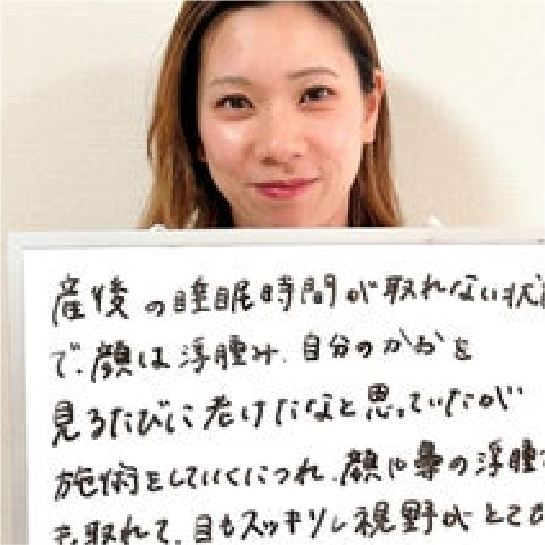 産後の睡眠時間が取れない状
で、顔は浮腫み、自分のかおを
見るたびに老けたなと思っていたが
施術をしていくにつれ、顔や鼻の浮腫
も取れて、目もスッキリし視野がとても